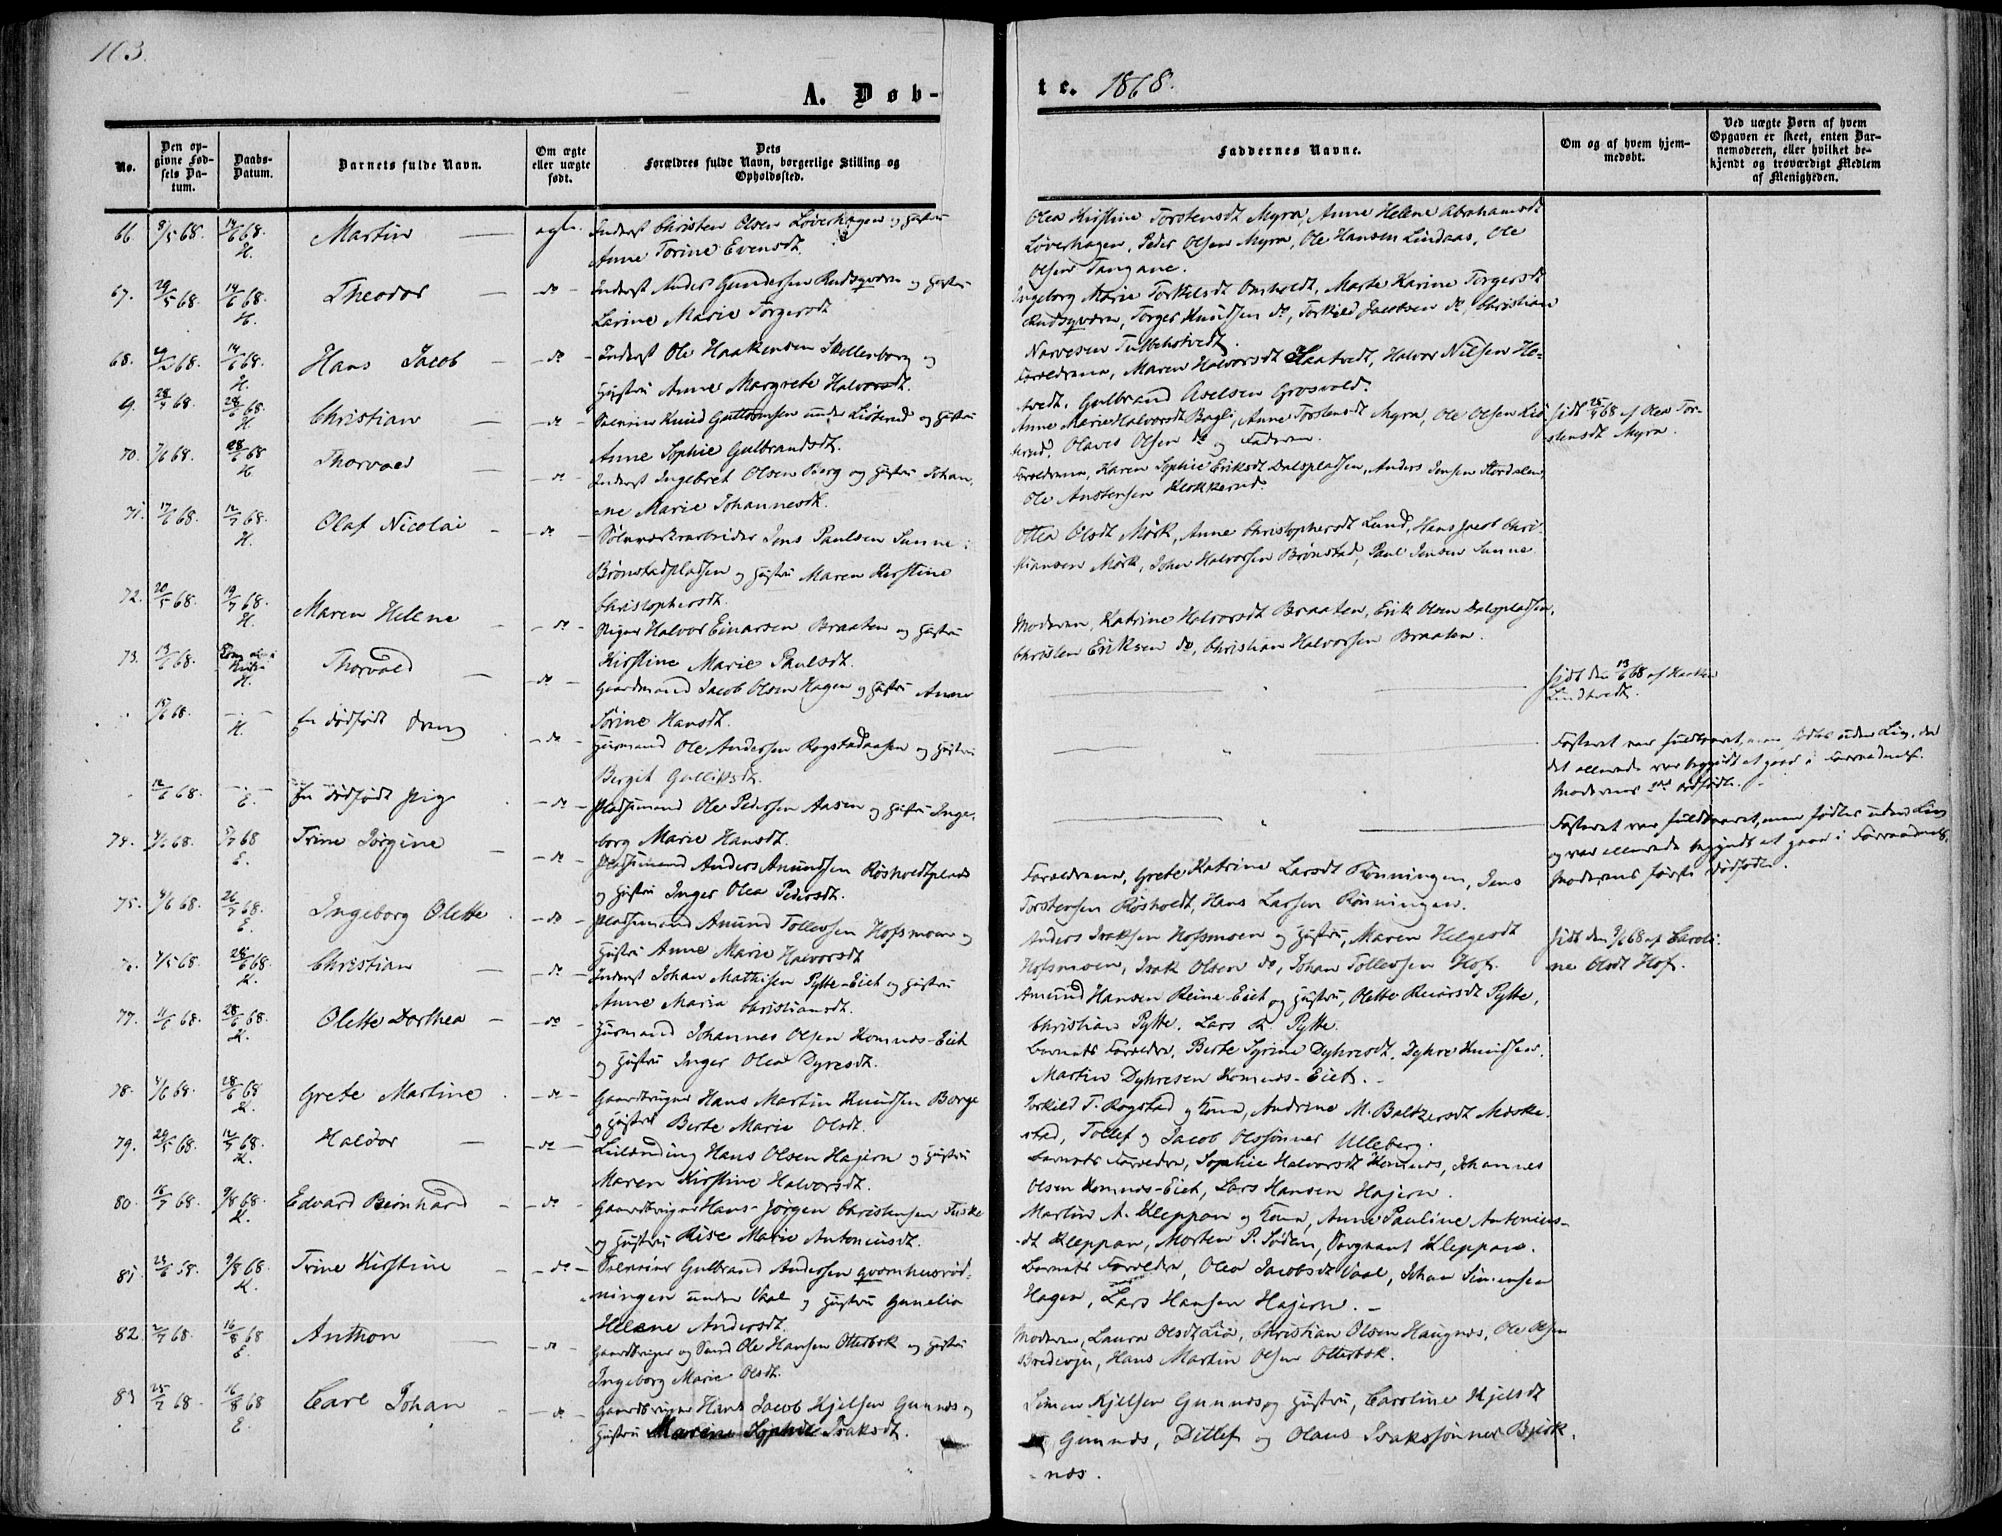 103.
A. Døb-
te. 1868.
No.
Den op-
givne Fød-
sels Da-
tum.
Daabs-
Datum.
Barnets fulde Navn.
Om ægte
eller uægte
født.
Dets
Forældres fulde Navn, borgerlige Stilling og
Opholdssted.
Faddernes Navne.
Om og af hvem hjem-
medøbt.
Ved uægte Børn af hvem
Opgaven er skeet, enten Bar-
nemoderen, eller hvilket be-
kjendt og troværdigt Medlem
af Menigheden.
66. 8/5 68. 14/6 68. H. Martin — ægte. Inderst Christen Olsen Løverhagen og Hustru
Anne Torine Evensdt.
Olea Kirstine Torstensdt Myra, Anne Helene Abrahamsdt
Løverhagen, Peder Olsen Myra, Ole Hansen Lindaas, Ole
Olsen Tangane.
67. 29/5 68. 14/6 68. H. Theodor — do — Inderst Anders Gundersen Rudsqværn og Hustru
Larine Marie Torgersdt
Ingeborg Marie Torkelsdt Omholdt, Marte Karine Torgersdt
Rudsqværn, Torger Knudsen do, Torkild Jacobsen do, Christian
Narvesen
68. 68. 14/6 68. H. Hans Jacob — do — Inderst Ole Haakensen Skollenborg og
Hustru Anne Margrete Halvorsdt.
Forældrene, Maren Halvorsdt Haatvedt, Halvor Nilsen Ho-
tvedt, Gulbrand Axelsen Grosvold.
69. 28/4 68. 28/6 68. H Christian — do — Knud Guttormsen under Listerud og Hustru
Anne Sophie Gulbrandsdt.
Anne Marie Halvorsdt Bagli, Anne Torstensdt Myra, Ole Olsen Lis-
terud, Olaves Olsen do og Faderen.
68 af Olea Tor-
stensdt Myra.
70. 7/6 68. 28/6 68 H Thorvald — do — Inderst Ingebret Olsen Berg og Hustru Johan-
ne Marie Johannesdt.
Forældrene, Karen Sophie Eriksdt Dalspladsen, Anders Jensen Stordalen,
Ole Anstensen Klokkerud.
71. 17/6 68. 12/7 68. H. Olaf Nicolai — do — Sølvværksarbeider Jens Paulsen Sunne i
Brønstadpladsen og Hustru Maren Kirstine
Christophersdt.
Ottea Olsdt Mørk, Anne Christophersdt Lund, Hans Jacob Chri-
stiansen Mørk, Johan Halvorsen Brønstad, Paul Jensen Sunne
72. 20/5 68. 19/7 68. H. Maren Helene — do — Halvor Einarsen Braaten og Hustru
Kirstine Marie Paulsdt.
Moderen, Katrine Halvorsdt Braaten, Erik Olsen Dalspladsen,
Christen Eriksen do, Christian Halvorsen Braaten.
73. 13/6 68. H. Thorvald — do — Gaardmand Jacob Olsen Hagen og Hustru Anne
Sørine Hansdt.
født den 13/6 68 af
15/6 68. — H. En dødfødt Dreng — do — Huusmand Ole Andersen Rogstadaasen og Hustru
Bergit Gulliksdt.
Fosteret var fuldbaaret, men fødtes uden Liv, da
det allerede var begyndt at gaae i Forraadnelse.
Moderens dødfødte.
12/6 68. — E. En dødfødt Pige — do — Pladsemand Ole Pedersen Aasen og Hustru Inge-
borg Marie Hansdt.
Fosteret var fuldbaaret, men fødtes uden Liv
og var allerede begyndt at gaae i Forraadnelse.
Moderens første dødfødte.
74. 68. 5/7 68 E. Trine Jørgine — do — Pladsemand Anders Amundsen Røsholdtplads
og Hustru Inger Olea Pedersdt.
Forældrene, Grete Katrine Larsdt Rønningen, Jens
Torstensen Røsholdt, Hans Larsen Rønningen.
75. 4/6 68. 26/7 68. E. Ingeborg Olette — do — Pladsemand Amund Tollefsen Hofsmoen og
Hustru Anne Marie Halvorsdt
Anders Isaksen Hofsmoen og Hustru, Maren Helgesdt
Hofsmoen, Isak Olsen do, Johan Tollefsen Hof.
født den 9/6 68 af Caroli-
ne Olsdt Hof.
76. 68. 28/6 68. K. Christian — do — Inderst Johan Mathisen Pytte-Eiet og Hustru
Anne Maria Christiansdt.
Amund Hansen Reine-Eiet og Hustru, Olette Pytte,
Christian Pytte, Lars Pytte.
77. 11/6 68. 28/6 68. K. Olette Dorthea — do — Huusmand Johannes Olsen Komnæs-Eiet
og Hustru Inger Olea Dyresdt.
Barnets Forældre, Berte Syrine Dyhresdt, Dyhre Knudsen,
Martin Dyhresen Komnæs-Eiet.
78. 4/6 68. 28/6 68 K. Grete Martine — do — Gaardbruger Hans Martin Knudsen Borge
og Hustru Berte Marie Olsdt.
Torkild T. Rogstad og Kone, Andrine M. Baltzersdt
stad, Tollef og Jacob Olssønner Ulleberg.
79. 29/5 68. 12/7 68. K. Halvor — do — Leilænding Hans Olsen Hajern og Hustru
Maren Kirstine Halvorsdt.
Barnets Forældre, Sophie Halvorsdt Komnæs, Johannes
Olsen Komnæs-Eiet, Lars Hansen Hajern.
80. 18/7 68. 9/8 68. K. Edvard Bernhard — do — Gaardbruger Hans-Jørgen Christensen Fuske
og Hustru Rise Marie Antoniusdt.
Martin A. Kleppan og Kone, Anne Pauline Antonius-
dt Kleppan, Morten P. Søden, Sergeant Kleppan.
81. 23/6 58. 9/8 68. K. Trine Kirstine — do — Gulbrand Andersen qvornhusrød-
ningen under Vaal og Hustru Gunelia
Helene Andersdt.
Barnets Forældre, Olea Jacobsdt Vaal, Johan Simensen
Hagen, Lars Hansen Hajern.
82. 2/7 68. 16/8 68 E. Anthon — do — Gaardbruger og Smed Ole Hansen Otterbæk og Hustru
Ingeborg Marie Olsdt.
Moderen, Laura Olsdt Liø, Christian Olsen Haugnæs, Ole Olsen
Bredevje, Hans Martin Olsen Otterbæk.
83 25/7 68. 16/8 68 E. Carl Johan — do — Gaardbruger Hans Jacob Kjelsen Gunnæs og
Hustru Maren Sophie Isaksdt.
Simen Kjelsen Gunnæs og Hustru, Caroline Kjelsdt
Gunnæs, Ditlef og Olaus Isakssønner Bjørk-
næs.